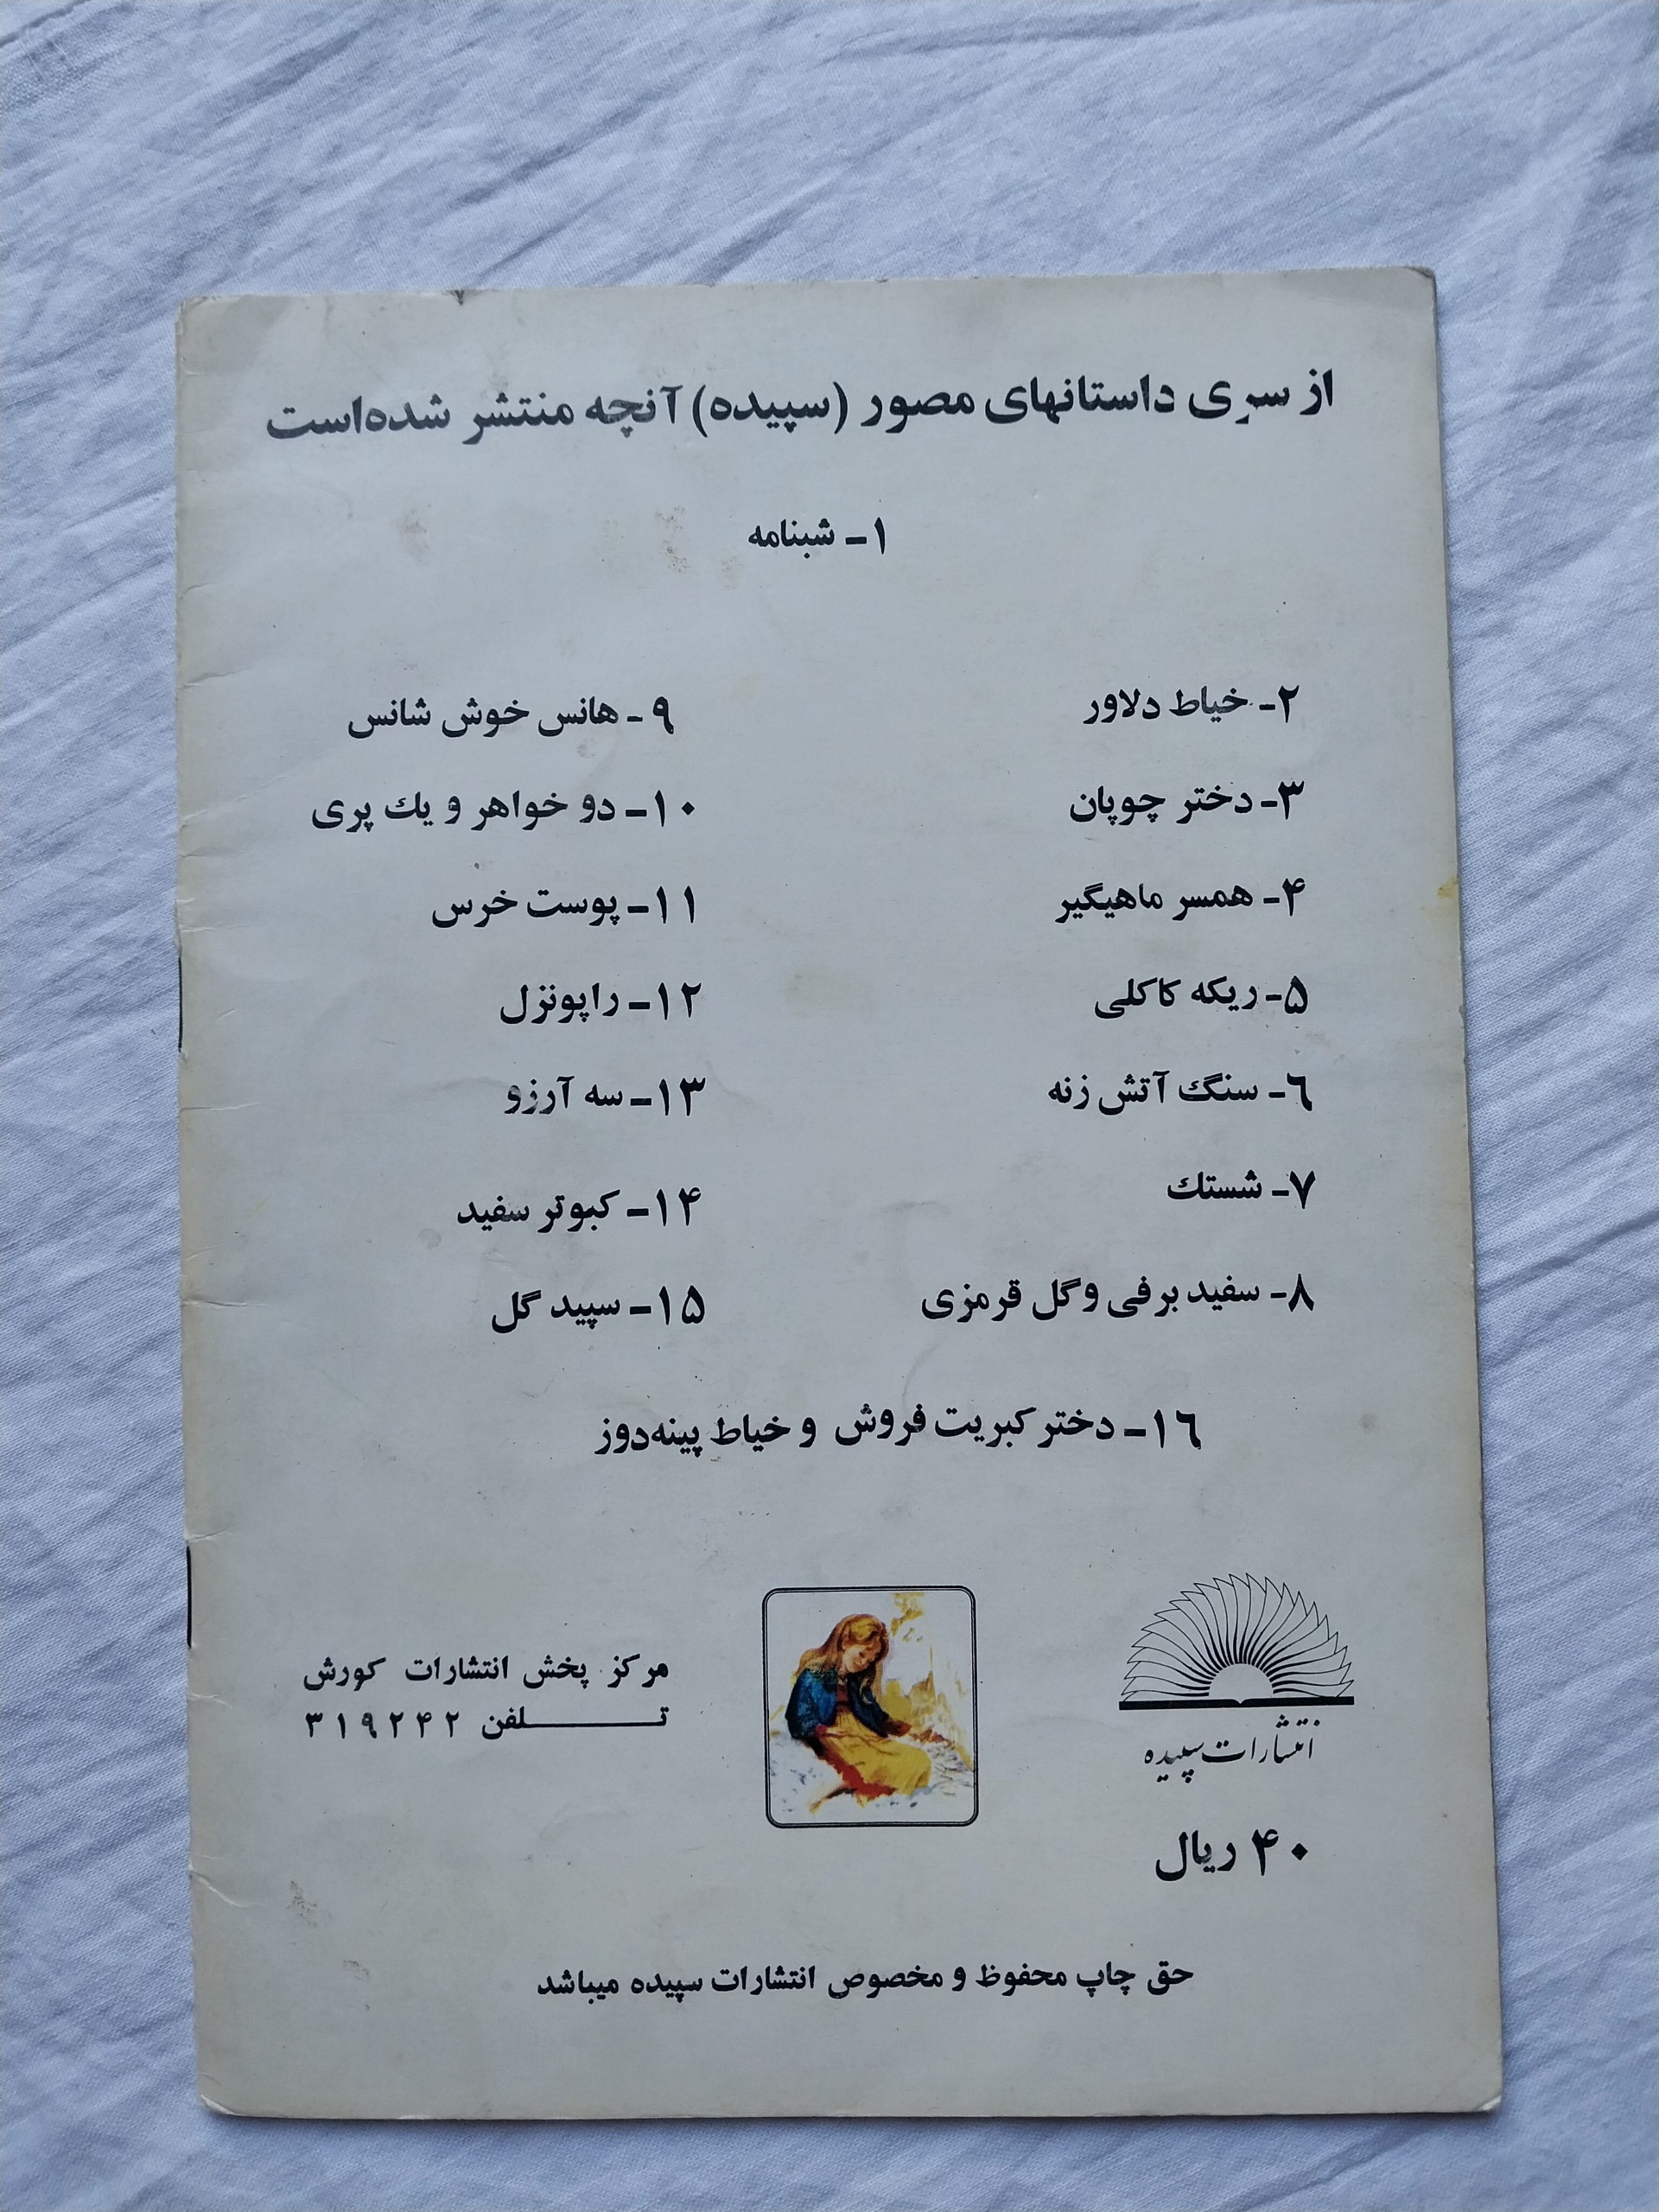 از سری داستانهای مصور (سپیده) آنچه منتشر شده‌است
۱- شبنامه
۲- خیاط دلاور
۳- دختر چوپان
۴- همسر ماهیگیر
۵- ریکه کاکلی
۶- سنگ آتش زنه
۷- شستك
۸- سفید برفی و گل قرمزی
۹- هانس خوش شانس
۱۰- دو خواهر و یك پری
۱۱- پوست خرس
۱۲- راپونزل
۱۳- سه آرزو
۱۴- کبوتر سفید
۱۵- سپید گل
۱۶- دختر کبریت فروش و خیاط پینه‌دوز
انتشارات سپیده
۴۰ ریال
مرکز پخش انتشارات کورش
تـــلفن ۳۱۹۲۴۲
حق چاپ محفوظ و مخصوص انتشارات سپیده میباشد